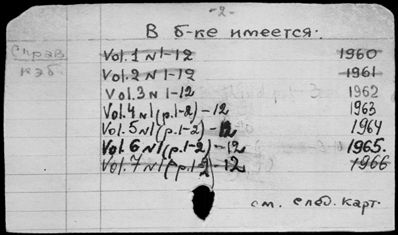 - 2 -
В б-ке имеется:
Справ
каб
Vol.1 N1-12 1960
Vol.2 N1-12 1961
Vol.3 N1-12 1962
Vol.4 N1(p.1-2)-12 1963
Vol.5 N1(p.1-2)-12 1964
Vol.6 N1(p.1-2)-12 1965.
Vol.7 N1(pp.1-2)-12 1966
см. след. карт.